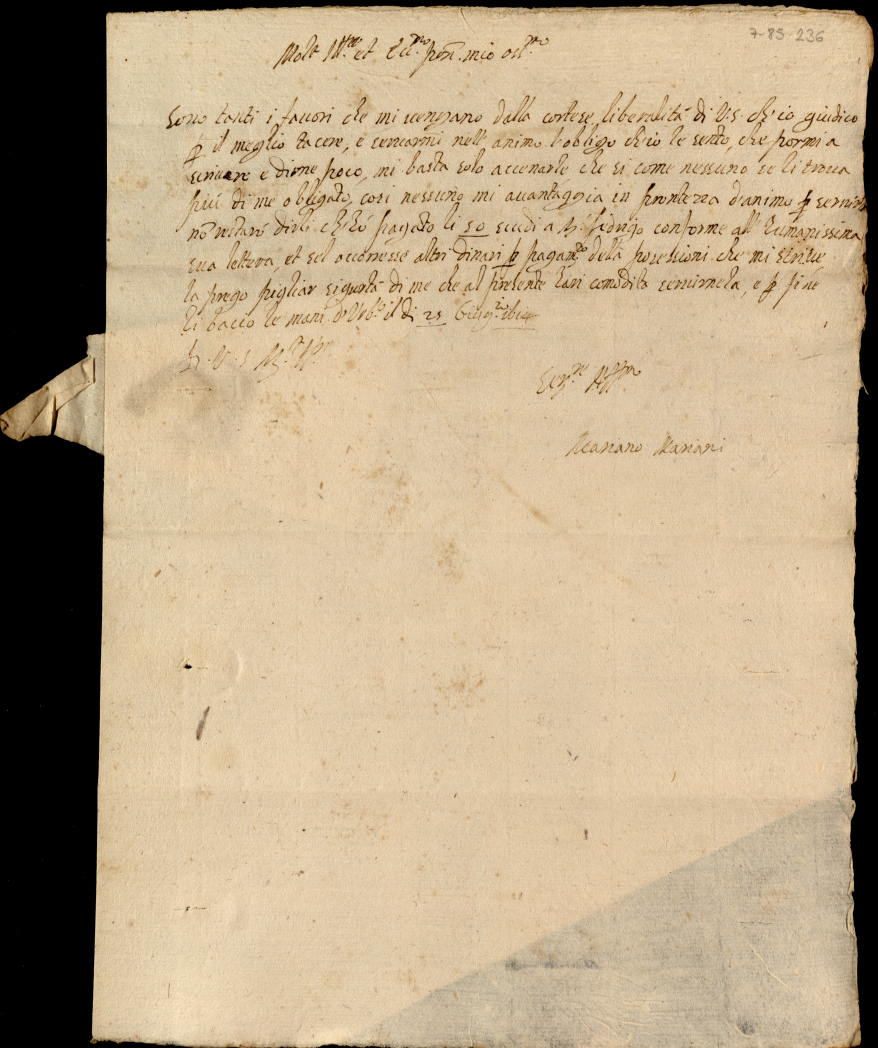 7-85-236
Molt Ill.re et Ecc.mo sig.r mio oss.mo
Sono tanti i fauori che mi uengano dalla cortese liberalità di V.S. ch'io giudico
p il meglio tacere, e serrarmi nell'animo l'obligo ch'io le sento, che pormi a
scriuere e dirne poco, mi basta solo accenarle che si come nessuno se li troua
più di me obligato, cosi nessuno mi auantaggia in prontezza d'animo p seruirla
nō restarò dirli ch'hò pagato li 50 scudi a conforme all'humanissima
sua lettera, et sel occorresse altri dinari p pagam.to della possessioni che mi scriue
la prego pigliar sigurtà di me che al presente harì comodità seruirnela, e p fine
li bacio le mani d' il dì 25 Giug.o
D. V. S
Ser.re Aff.mo
Mariano Mariani